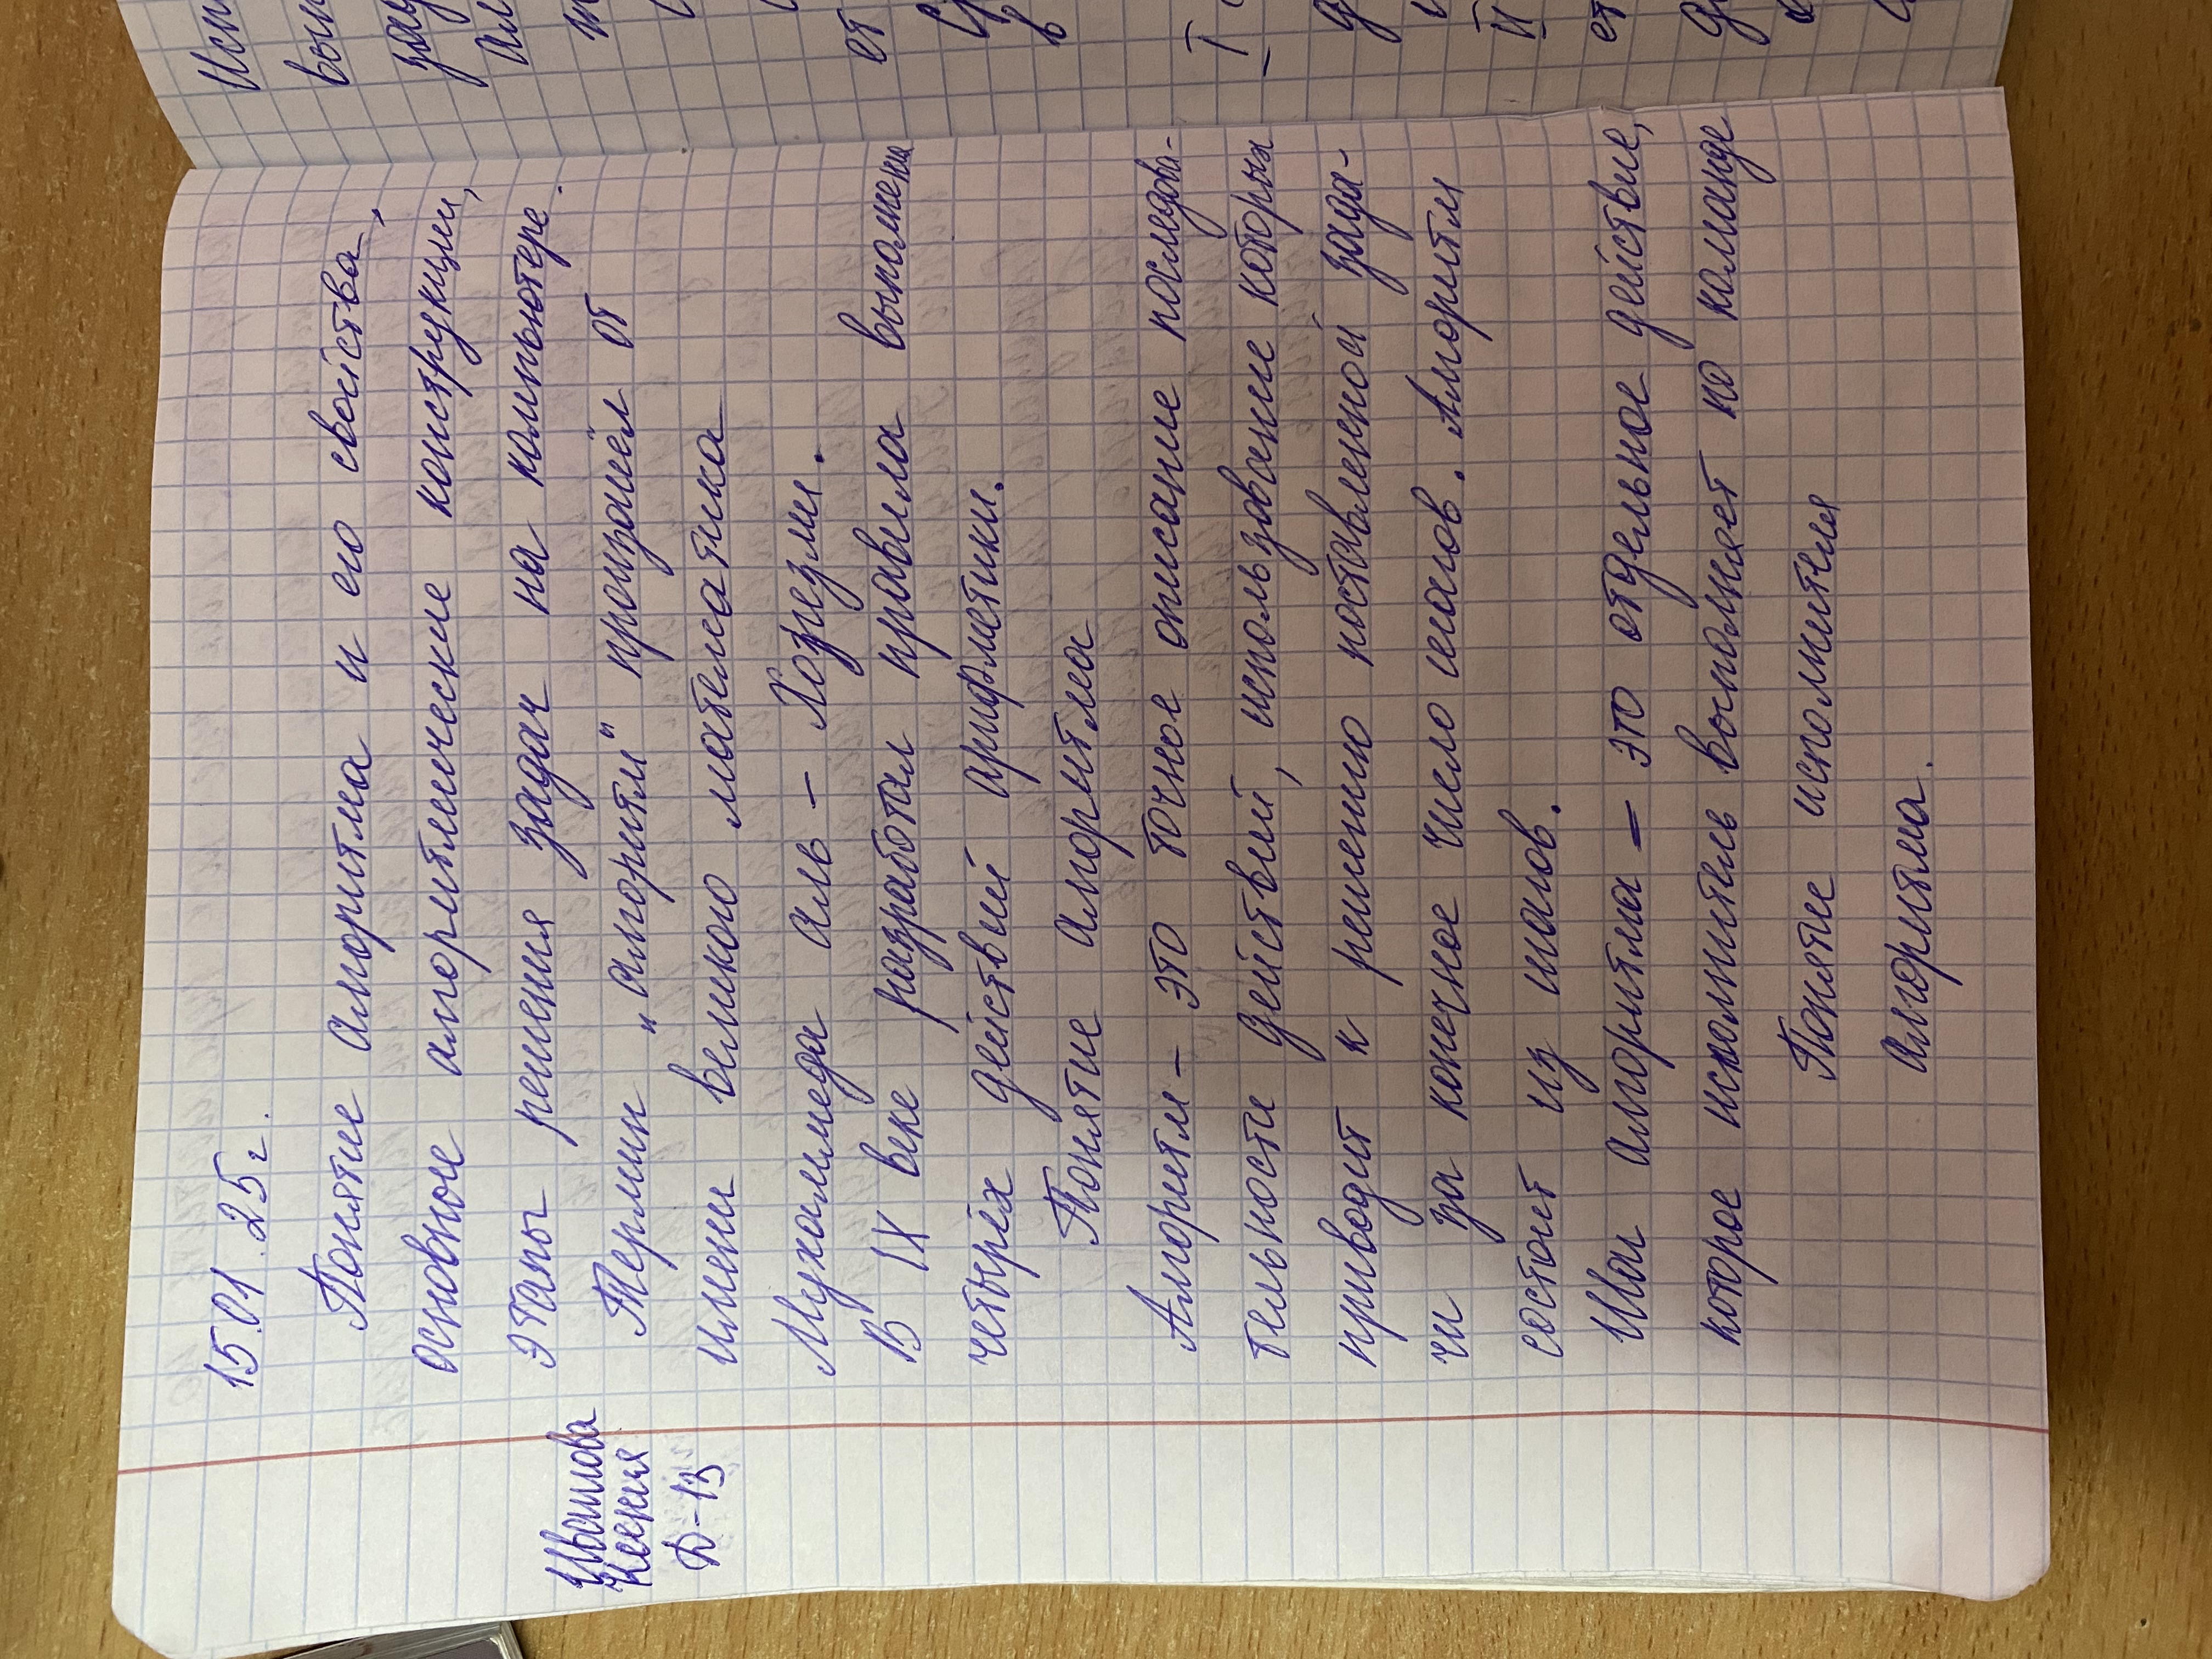 15.01.25г.
Понятие алгоритма и его свойства,
основное алгоритмические конструкции,
этапы решения задач на компьютере.
Термин "алгоритм" произошёл от
имени великого математика
Мухаммеда аль - Хорезми.
В IX веке разработал правила выполнения
четырёх действий арифметики.
Понятие алгоритма
Алгоритм - это точное описание последова-
тельности действий, использование которых
приводит к решению поставленной зада-
чи за конечное число шагов. Алгоритм
состоит из шагов.
Шаг алгоритма - это отдельное действие,
которое исполнитель выполняет по команде
Понятие исполнителя
алгоритма.
Ксения
D-13